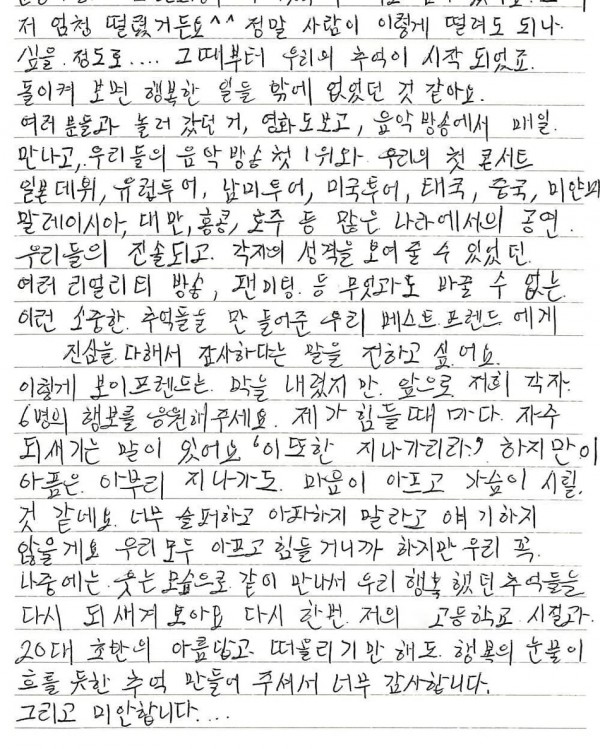 저 엄청 떨렸거든요^^ 정말 사람이 이렇게 떨려도 되나
싶을 정도로.... 그때부터 우리의 추억이 시작 되었죠.
돌이켜 보면 행복한 일들 밖에 없었던 것 같아요.
여러분들과 놀러 갔던 거, 영화도보고, 음악 방송에서 매일.
만나고, 우리들의 음악방송 첫 1위와 우리의 첫 콘서트
일본데뷔, 유럽투어, 남미투어, 미국투어, 태국, 중국, 미얀마
말레이시아, 대만, 홍콩, 호주 등 많은 나라에서의 공연.
우리들의 진솔되고 각자의 성격을 보여줄 수 있었던.
여러 리얼리티 방송, 팬미팅 등 무엇과도 바꿀 수 없는
이런 소중한 추억들을 만들어준 우리 베스트프렌드 에게
진심을 다해서 감사하다는 말을 전하고 싶어요.
이렇게 보이프렌드는 막을 내렸지만. 앞으로 저희 각자.
6명의 행보를 응원해주세요. 제가 힘들때 마다 자주
되새기는 말이 있어요 '이또한 지나가리라' 하지만 이
아픔은 아무리 지나가도 마음이 아프고 가슴이 시릴.
것 같네요. 너무 슬퍼하고 아파하지 말라고 얘기하지
않을게요 우리모두 아프고 힘들거니까 하지만 우리 꼭.
나중에는 웃는모습으로 같이 만나서 우리 행복했던 추억들을
다시 되새겨 보아요 다시 한번 저의 고등학교 시절과
20대 초반의 아름답고 떠올리기만 해도 행복의 눈물이
흐를 듯한 추억 만들어 주셔서 너무 감사합니다.
그리고 미안합니다....